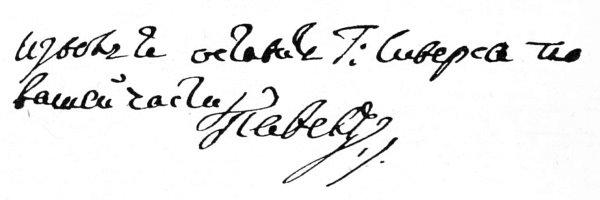 изволите оставить Г: Сиверса по
вашей части
Павел